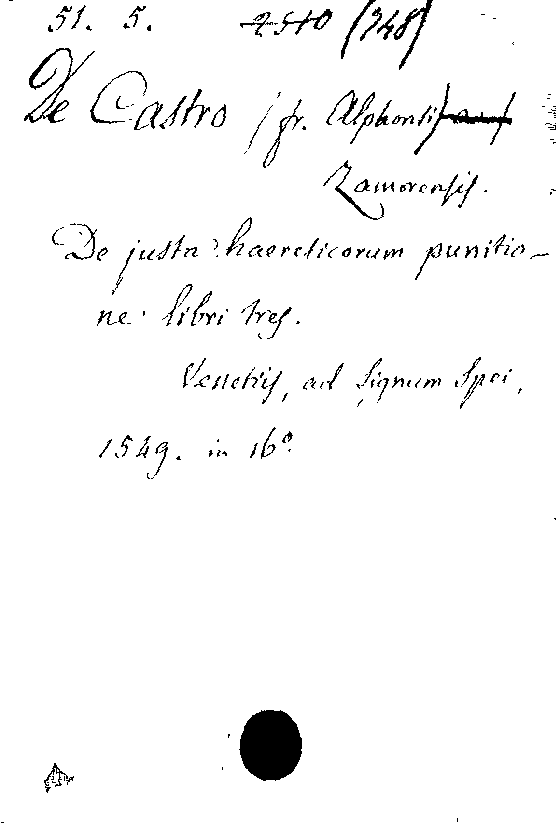 51. 5. 2510 (348)
De Castro (fr. Alphonsi)
Zamorensis.
De justa haereticorum punitio-
ne libri tres.
Venetiis, ad Signum Spei,
1549. in 16º